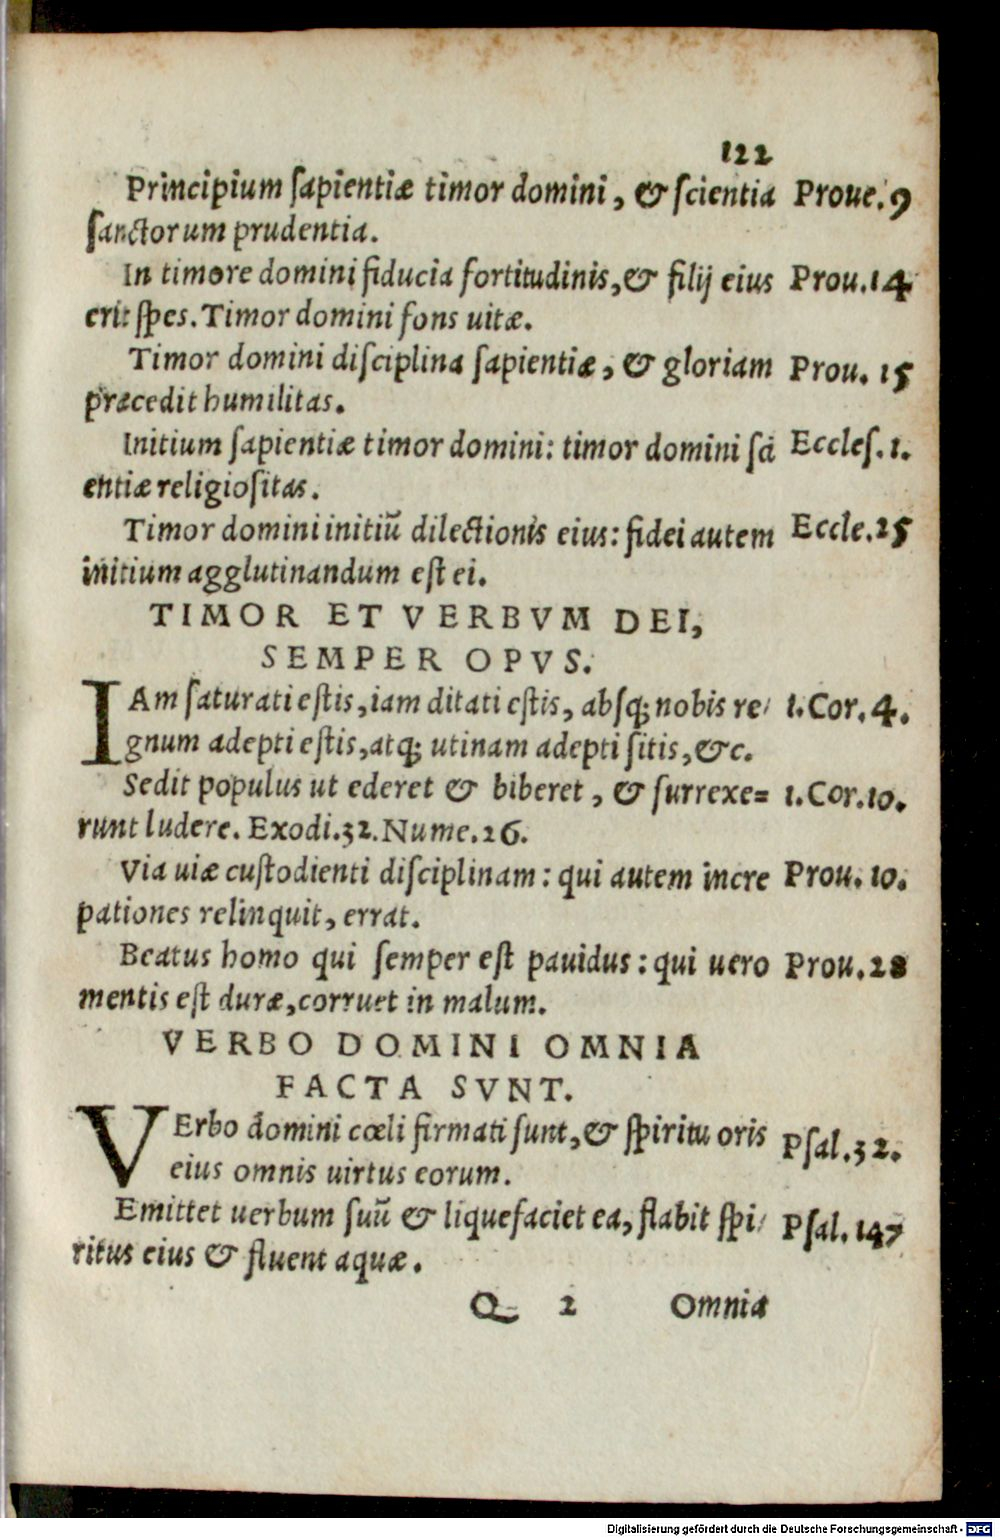 122
Principium ſapientiæ timor domini, & ſcientia Proue.9
ſanctorum prudentia.
In timore domini fiducia fortitudinis,& filij eius Prou.14
erit ſpes. Timor domini fons uitæ.
Timor domini diſciplina ſapientiæ, & gloriam Prou. 15
præcedit humilitas.
Initium ſapientiæ timor domini: timor domini ſci Eccleſ.1.
entiæ religioſitas.
Timor domini initiū dilectionis eius: fidei autem Eccle.25
initium agglutinandum eſt ei.
TIMOR ET VERBVM DEI,
SEMPER OPVS.
IAm ſaturati eſtis, iam ditati eſtis, abſq; nobis re/ 1.Cor.4.
gnum adepti eſtis, atq; utinam adepti ſitis, &c.
Sedit populus ut ederet & biberet, & ſurrexe= 1.Cor.10.
runt ludere. Exodi.32. Nume.26.
Via uiæ cuſtodienti diſciplinam: qui autem incre Prou. 10.
pationes relinquit, errat.
Beatus homo qui ſemper eſt pauidus: qui uero Prou.28
mentis eſt duræ, corruet in malum.
VERBO DOMINI OMNIA
FACTA SVNT.
VErbo domini cœli firmati ſunt, & ſpiritu oris Pſal.32.
eius omnis uirtus eorum.
Emittet uerbum ſuū & liquefaciet ea, flabit ſpi/ Pſal.147
ritus eius & fluent aquæ.
Q 2 Omnia
Digitalisierung gefördert durch die Deutsche Forschungsgemeinschaft - DFG